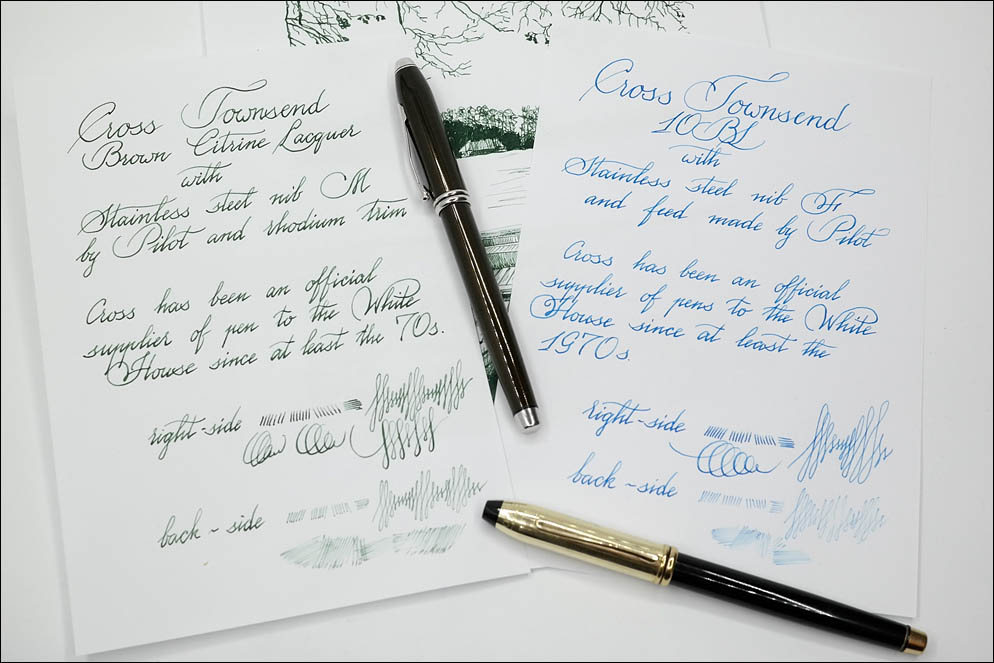 Cross Townsend
Brown Citrine Lacquer
with
Stainless steel nib M
by Pilot and rhodium trim
Cross has been an official
supplier of pen to the White
House since at least the 70s.
right-side
back ~ side
Cross Townsend
10BL
with
Stainless steel nib Fr
and feed made by Pilot
Cross has been an official
supplier of pens to the White
House since at least the
1970s.
right-side
back ~ side